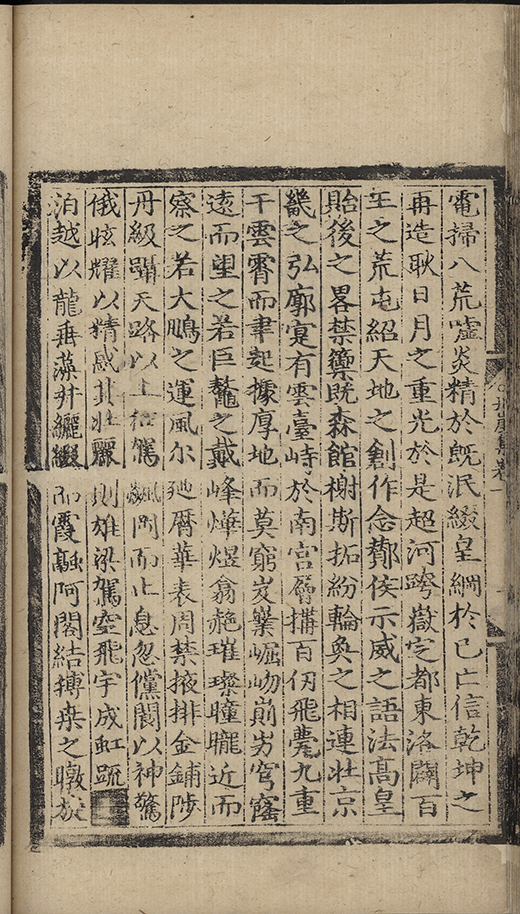 電掃八荒噓炎精於既泯綴皇綱於已亡信乾坤之
再造耿日月之重光於是超河跨嶽定都東洛闢百
王之荒屯紹天地之創作念酇侯示威之語法高皇
貽後之畧禁籞既森館榭斯拓紛輪奐之相連壯京
畿之弘廓寔有雲臺峙於南宮層搆百仞飛甍九重
干雲霄而聿起據厚地而莫窮岌嶪崛岉穹窿
遠而望之若巨鼇之戴峰燁煜翕赩璀璨曈曨近而
察之若大鵬之運風尔廼曆華表周禁掖排金鋪陟
丹級躡天路以上而止息忽儻閬以神驚
俄眩耀以精感其壯麗則雄梁駕空飛宇成虹疏
泊越以龍垂藻井纚綴而霞融阿閣結摶桒之暾放
集卷一